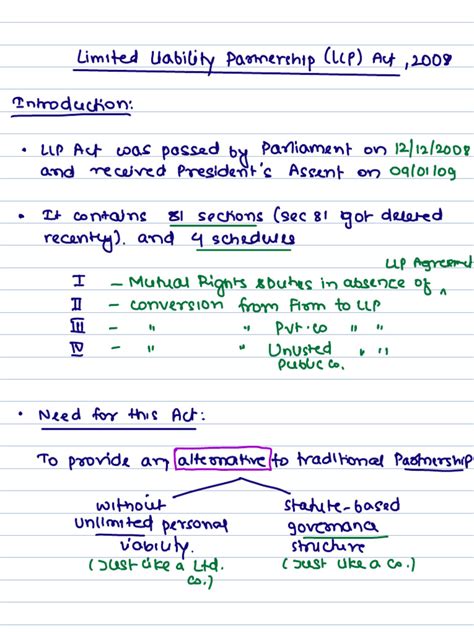 Limited Liability Partnership (LLP) Act, 2008
Introduction:
• LLP Act was passed by Parliament on 12/12/2008
and received President's Assent on 09/01/09
• It contains 81 sections (sec 81 got deleted
recently). and 4 schedules
LLP Agreement
I – Mutual Rights & Duties in absence of ^
II – conversion from Firm to LLP
III – " " Pvt. co " "
IV – " " Unlisted " "
Public Co.
• Need for this Act:
To provide an alternative to traditional Partnership
without statute-based
unlimited personal governance
liability. structure
(Just like a Ltd. (Just like a Co.)
Co.)